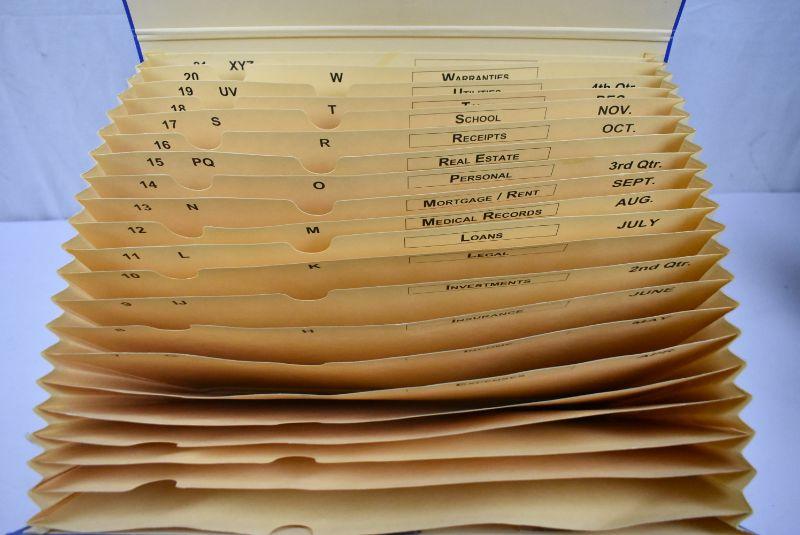 21 XYZ
20 W WARRANTIES
19 UV UTILITIES 4th Qtr.
18 T DEC.
17 S SCHOOL NOV.
16 R RECEIPTS OCT.
15 PQ REAL ESTATE 3rd Qtr.
14 O PERSONAL SEPT.
13 N MORTGAGE / RENT AUG.
12 M MEDICAL RECORDS JULY
11 L LOANS
10 K LEGAL 2nd Qtr.
9 IJ INVESTMENTS JUNE
8 H INSURANCE MAY
7 INCOME APR.
EXPENSES